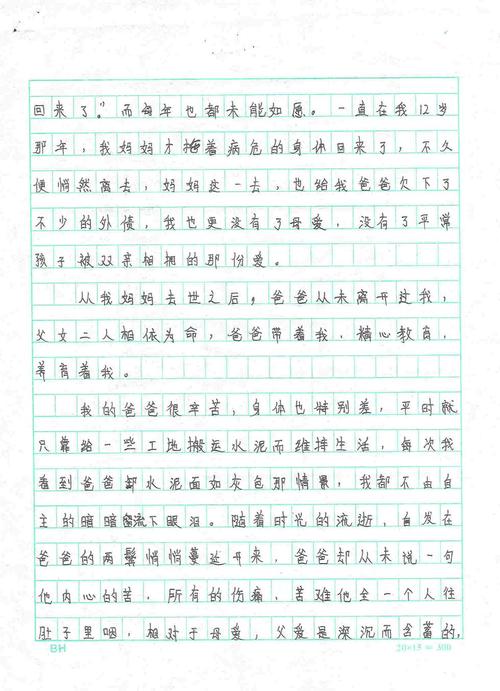 回来了。”而每年也都未能如愿。一直在我12岁
那年，我妈妈才拖着病危的身体回来了，不久
便悄然离去，妈妈这一去，也给我爸爸欠下了
不少的外债，我也更没有了母爱，没有了平常
孩子被双亲相拥的那份爱。
从我妈妈去世之后，爸爸从未离开过我，
父女二人相依为命，爸爸带着我，精心教育，
养育着我。
我的爸爸很辛苦，身体也特别差，平时就
只靠给一些工地搬运水泥而维持生活，每次我
看到爸爸卸水泥面如灰包那情景，我都不由自
主的暗暗流下眼泪。随着时光的流逝，白发在
爸爸的两鬓悄悄蔓延开来，爸爸却从未说一句
他内心的苦，所有的伤痛，苦难他全一个人往
肚子里咽，相对于母爱，父爱是深沉而含蓄的，
BH
20×15＝300